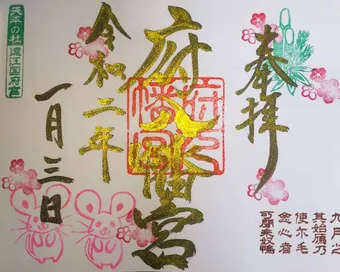 奉拝
府八幡宮
府八
幡宮
令和二年
一月三日
天平の社
遠江国府宮
九月之
其始鴈乃
使尓毛
念心者
可聞来奴鴨